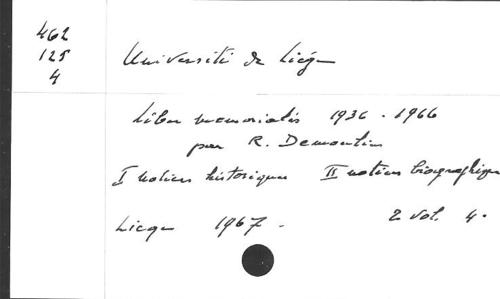 462
125
4
Université de Liége
Liber memorialis 1936 - 1966
par R. Demoulin
I notices historiques II notices biographiques
Liege 1967 -
2 vol. 4°